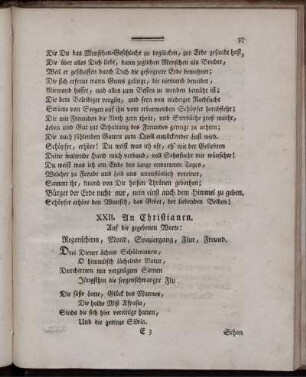 37
Die Du das Menschen-Geschlecht zu beglücken, zur Erde gesandt hast,
Die über alles Dich liebt, dann jeglichen Menschen als Bruder,
Weil er geschaffen durch Dich die gesegnete Erde bewohnet;
Die sich erfreut wann Gutes gelingt, die niemand beneidet,
Niemand hasset, und alles zum Besten zu wenden bemüht ist;
Die dem Beleidiger vergibt, und fern von niedriger Rachsucht
Ströme von Seegen auf ihn vom erbarmenden Schöpfer herabfleht;
Die mit Freunden die Noth gern theilt, und
Leben und Gut zur Erhaltung des Freundes gering zu achten;
Die auch fühlenden Gatten zum
Schöpfer, erhöre! Du weist was ich
Deine waltende Hand mich verband, voll Sehnsucht mir wünsche!
Du weist was ich am Ende des lange ermatteten Tages,
Welcher zu Freude und Leid uns unauflöslich vereinet,
mir, freund von Dir heißen Thränen gebethet!
Bürger der Erde nicht nur, nein einst auch dem Himmel zu geben,
Schöpfer erhöre den Wunsch, das Gebet, der liebenden Beiden!
XXII. An Christianen.
Auf die gegebenen Worte:
Regenschirm, Mond, Spaziergang, Flur, Freund.
Drei Diener ächten Schäferinnen,
O himmlisch lächelnde Natur,
Durchirrten mir vergnügten Sinnen
Jüngsthin die seegenschwangre Flur.
Die süße Lotte, Glück des Mannes,
Die holde Miß Aspasia,
Sinds die sich hier vereinigt hatten,
Und die getreue Silvia.
E 3 Schon